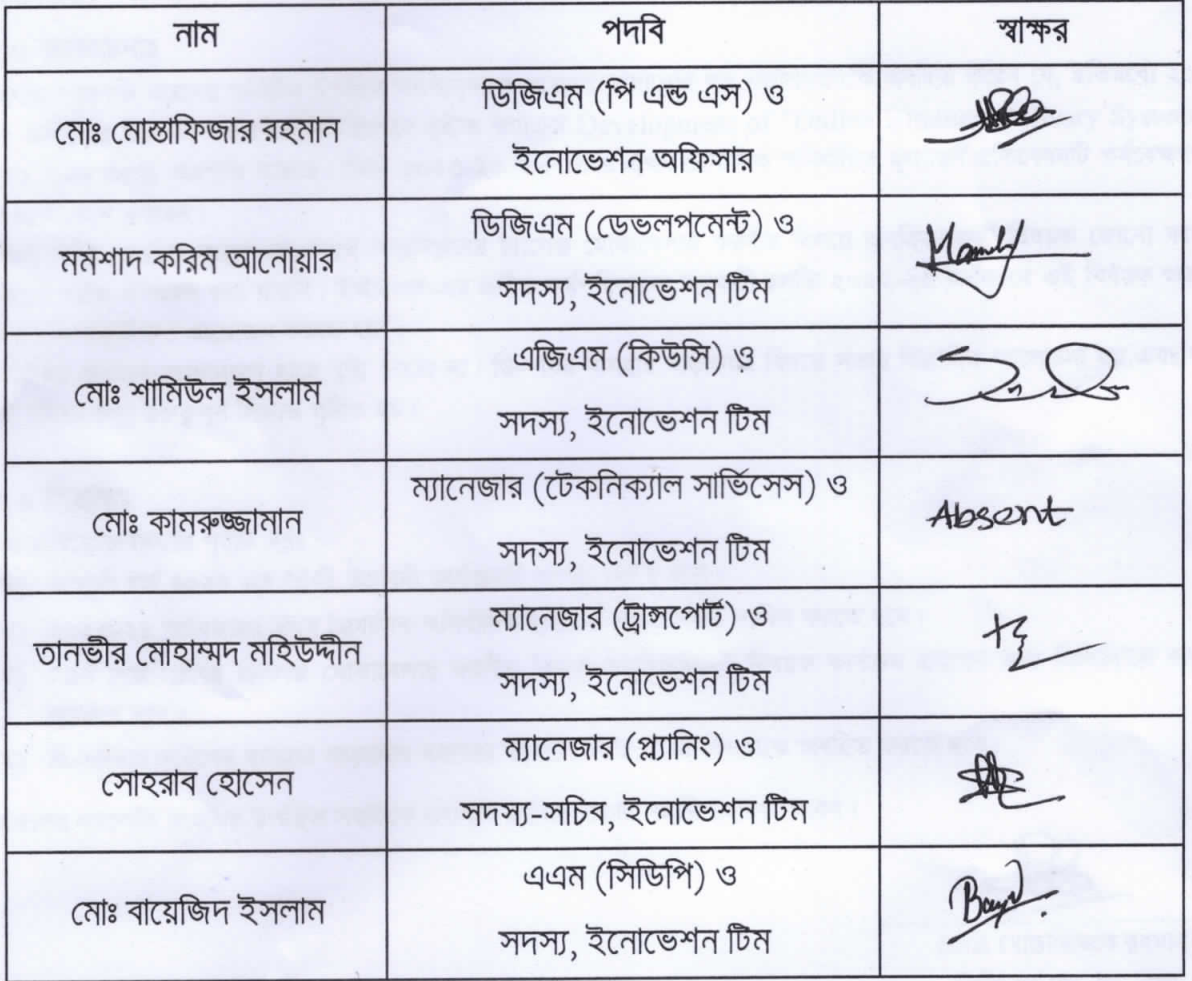 নাম পদবি স্বাক্ষর
মোঃ মোস্তাফিজার রহমান
ডিজিএম (পি এন্ড এস) ও
ইনোভেশন অফিসার
মমশাদ করিম আনোয়ার
ডিজিএম (ডেভলপমেন্ট) ও
সদস্য, ইনোভেশন টিম
মোঃ শামিউল ইসলাম
এজিএম (কিউসি) ও
সদস্য, ইনোভেশন টিম
মোঃ কামরুজ্জামান
ম্যানেজার (টেকনিক্যাল সার্ভিসেস) ও
সদস্য, ইনোভেশন টিম
Absent
তানভীর মোহাম্মদ মহিউদ্দীন
ম্যানেজার (ট্রান্সপোর্ট) ও
সদস্য, ইনোভেশন টিম
সোহরাব হোসেন
ম্যানেজার (প্ল্যানিং) ও
সদস্য-সচিব, ইনোভেশন টিম
মোঃ বায়েজিদ ইসলাম
এএম (সিডিপি) ও
সদস্য, ইনোভেশন টিম